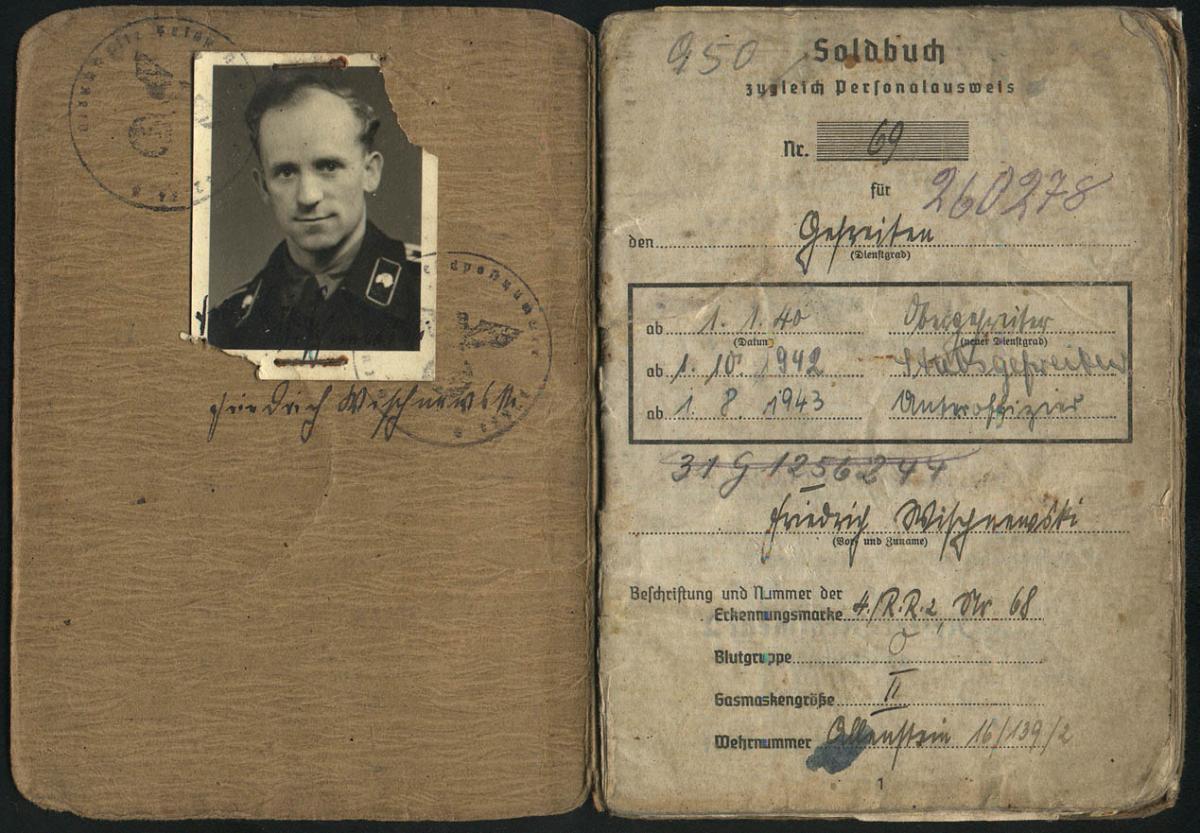 Friedrich Wischnewski
950
Soldbuch
zugleich Personalausweis
Nr. 69
für
260278
den Gefreiten
(Dienstgrad)
ab 1. 1. 40 Obergefreiter
(Datum) (neuer Dienstgrad)
ab 1. 10. 1942 Stabsgefreiter
ab 1. 8. 1943 Unteroffizier
31 G 1256244
Friedrich Wischnewski
(Vor- und Zuname)
Beschriftung und Nummer der
Erkennungsmarke 4./R.R.2, Nr 68
Blutgruppe O
Gasmaskengröße II
Wehrnummer Allenstein 16/139/2
1